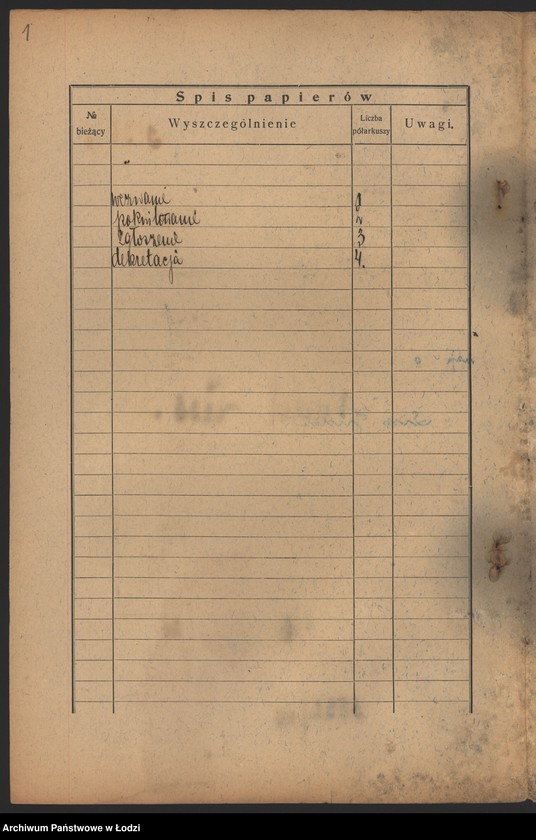 1
Spis papierów
№ bieżący
Wyszczególnienie
Liczba półarkuszy
Uwagi.
wezwanie 1
pokwitowanie 2
zgłoszenie 3
dekretacja 4.
Archiwum Państwowe w Łodzi